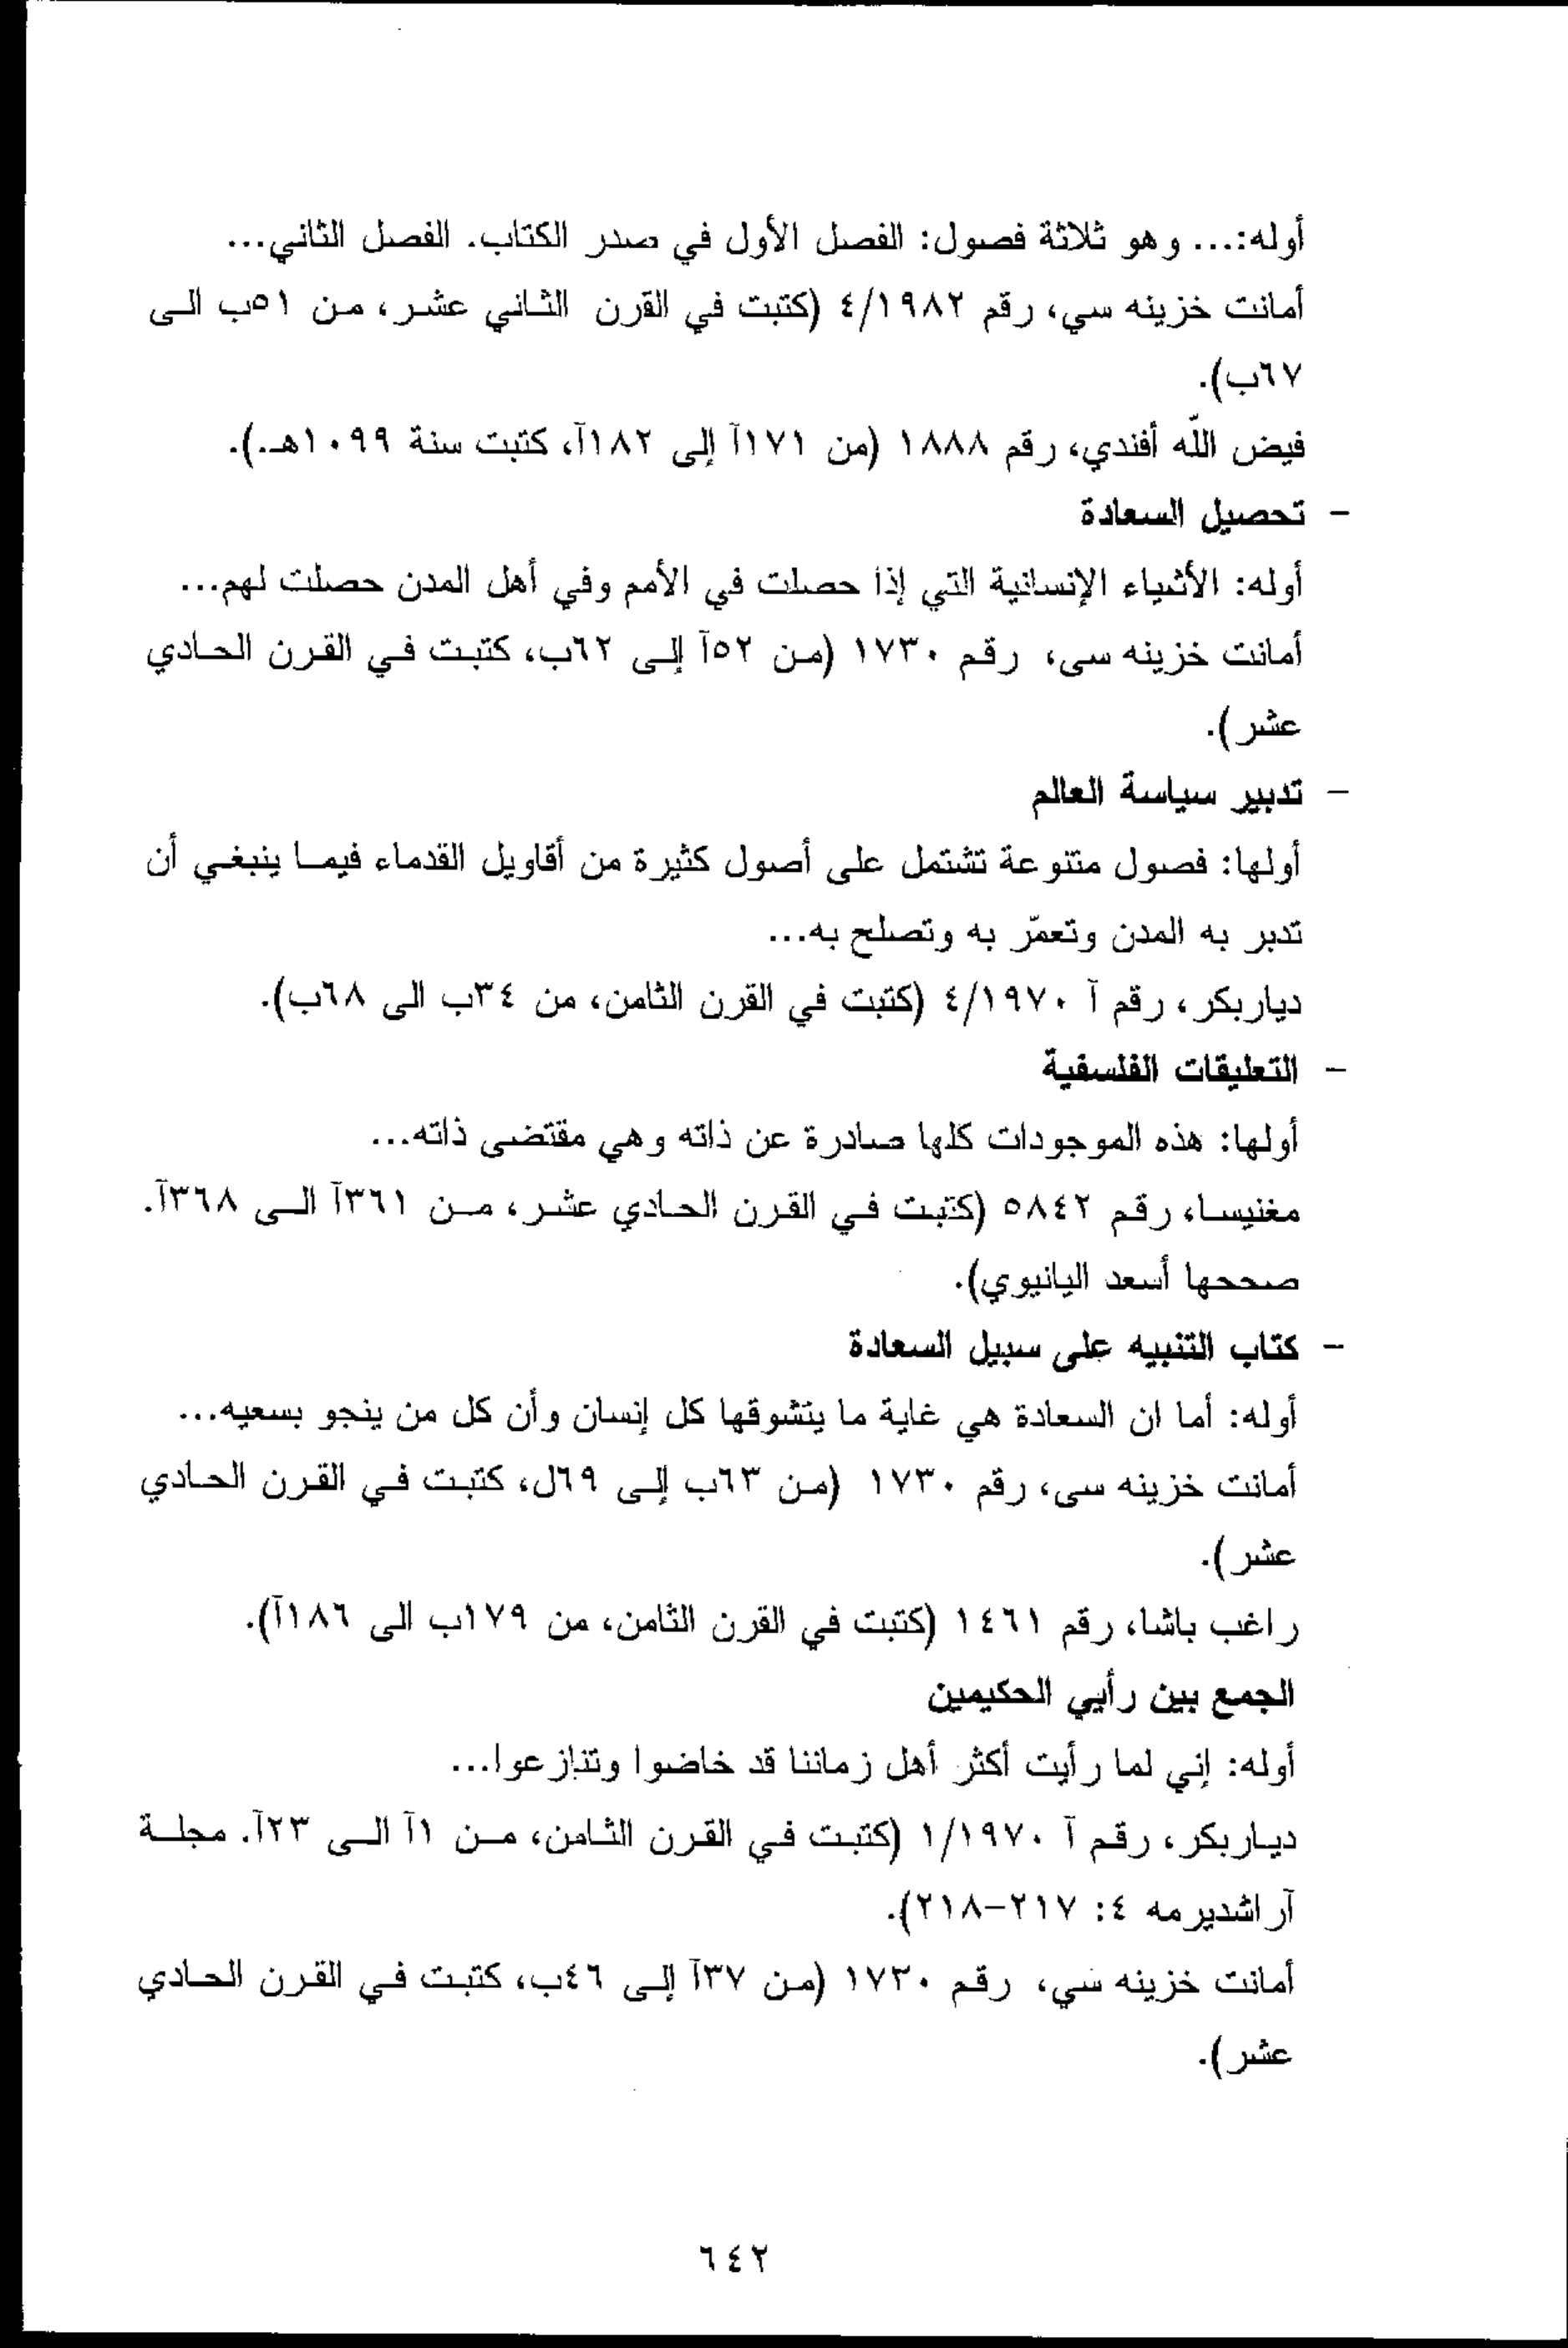 أوله:... وهو ثلاثة فصول: الفصل الأول في صدر الكتاب. الفصل الثاني...
أمانت خزينه سي، رقم ٤/١٩٨٢ (كتبت في القرن الثاني عشر، من ٥١ب الى
٦٧ب).
فيض اللّه أفندي، رقم ١٨٨٨ (من ١٧١آ إلى ١٨٢آ، كتبت سنة ١٠٩٩هـ.).
- تحصيل السعادة
أوله: الأشياء الإنسانية التي إذا حصلت في الأمم وفي أهل المدن حصلت لهم...
أمانت خزينه سى، رقم ١٧٣٠ (من ٥٢آ إلى ٦٢ب، كتبت في القرن الحادي
عشر).
- تدبير سياسة العالم
أولها: فصول متنوعة تشتمل على أصول كثيرة من أقاويل القدماء فيما ينبغي أن
تدبر به المدن وتعمّر به وتصلح به...
دياربكر، رقم آ ٤/١٩٧٠ (كتبت في القرن الثامن، من ٣٤ب الى ٦٨ب).
- التعليقات الفلسفية
أولها: هذه الموجودات كلها صادرة عن ذاته وهي مقتضى ذاته...
مغنيسا، رقم ٥٨٤٢ (كتبت في القرن الحادي عشر، من ٣٦١آ الى ٣٦٨آ.
صححها أسعد اليانيوي).
- كتاب التنبيه على سبيل السعادة
أوله: أما ان السعادة هي غاية ما يتشوقها كل إنسان وأن كل من ينجو بسعيه...
أمانت خزينه سى، رقم ١٧٣٠ (من ٦٣ب إلى ٦٩ل، كتبت في القرن الحادي
عشر).
راغب باشا، رقم ١٤٦١ (كتبت في القرن الثامن، من ١٧٩ب الى ١٨٦آ).
الجمع بين رأيي الحكيمين
أوله: إني لما رأيت أكثر أهل زماننا قد خاضوا وتنازعوا...
دياربكر، رقم آ ١/١٩٧٠ (كتبت في القرن الثامن، من ١آ الى ٢٣آ. مجلة
آراشديرمه ٤: ٢١٧-٢١٨).
أمانت خزينه سي، رقم ١٧٣٠ (من ٣٧آ إلى ٤٦ب، كتبت في القرن الحادي
عشر).
٦٤٢